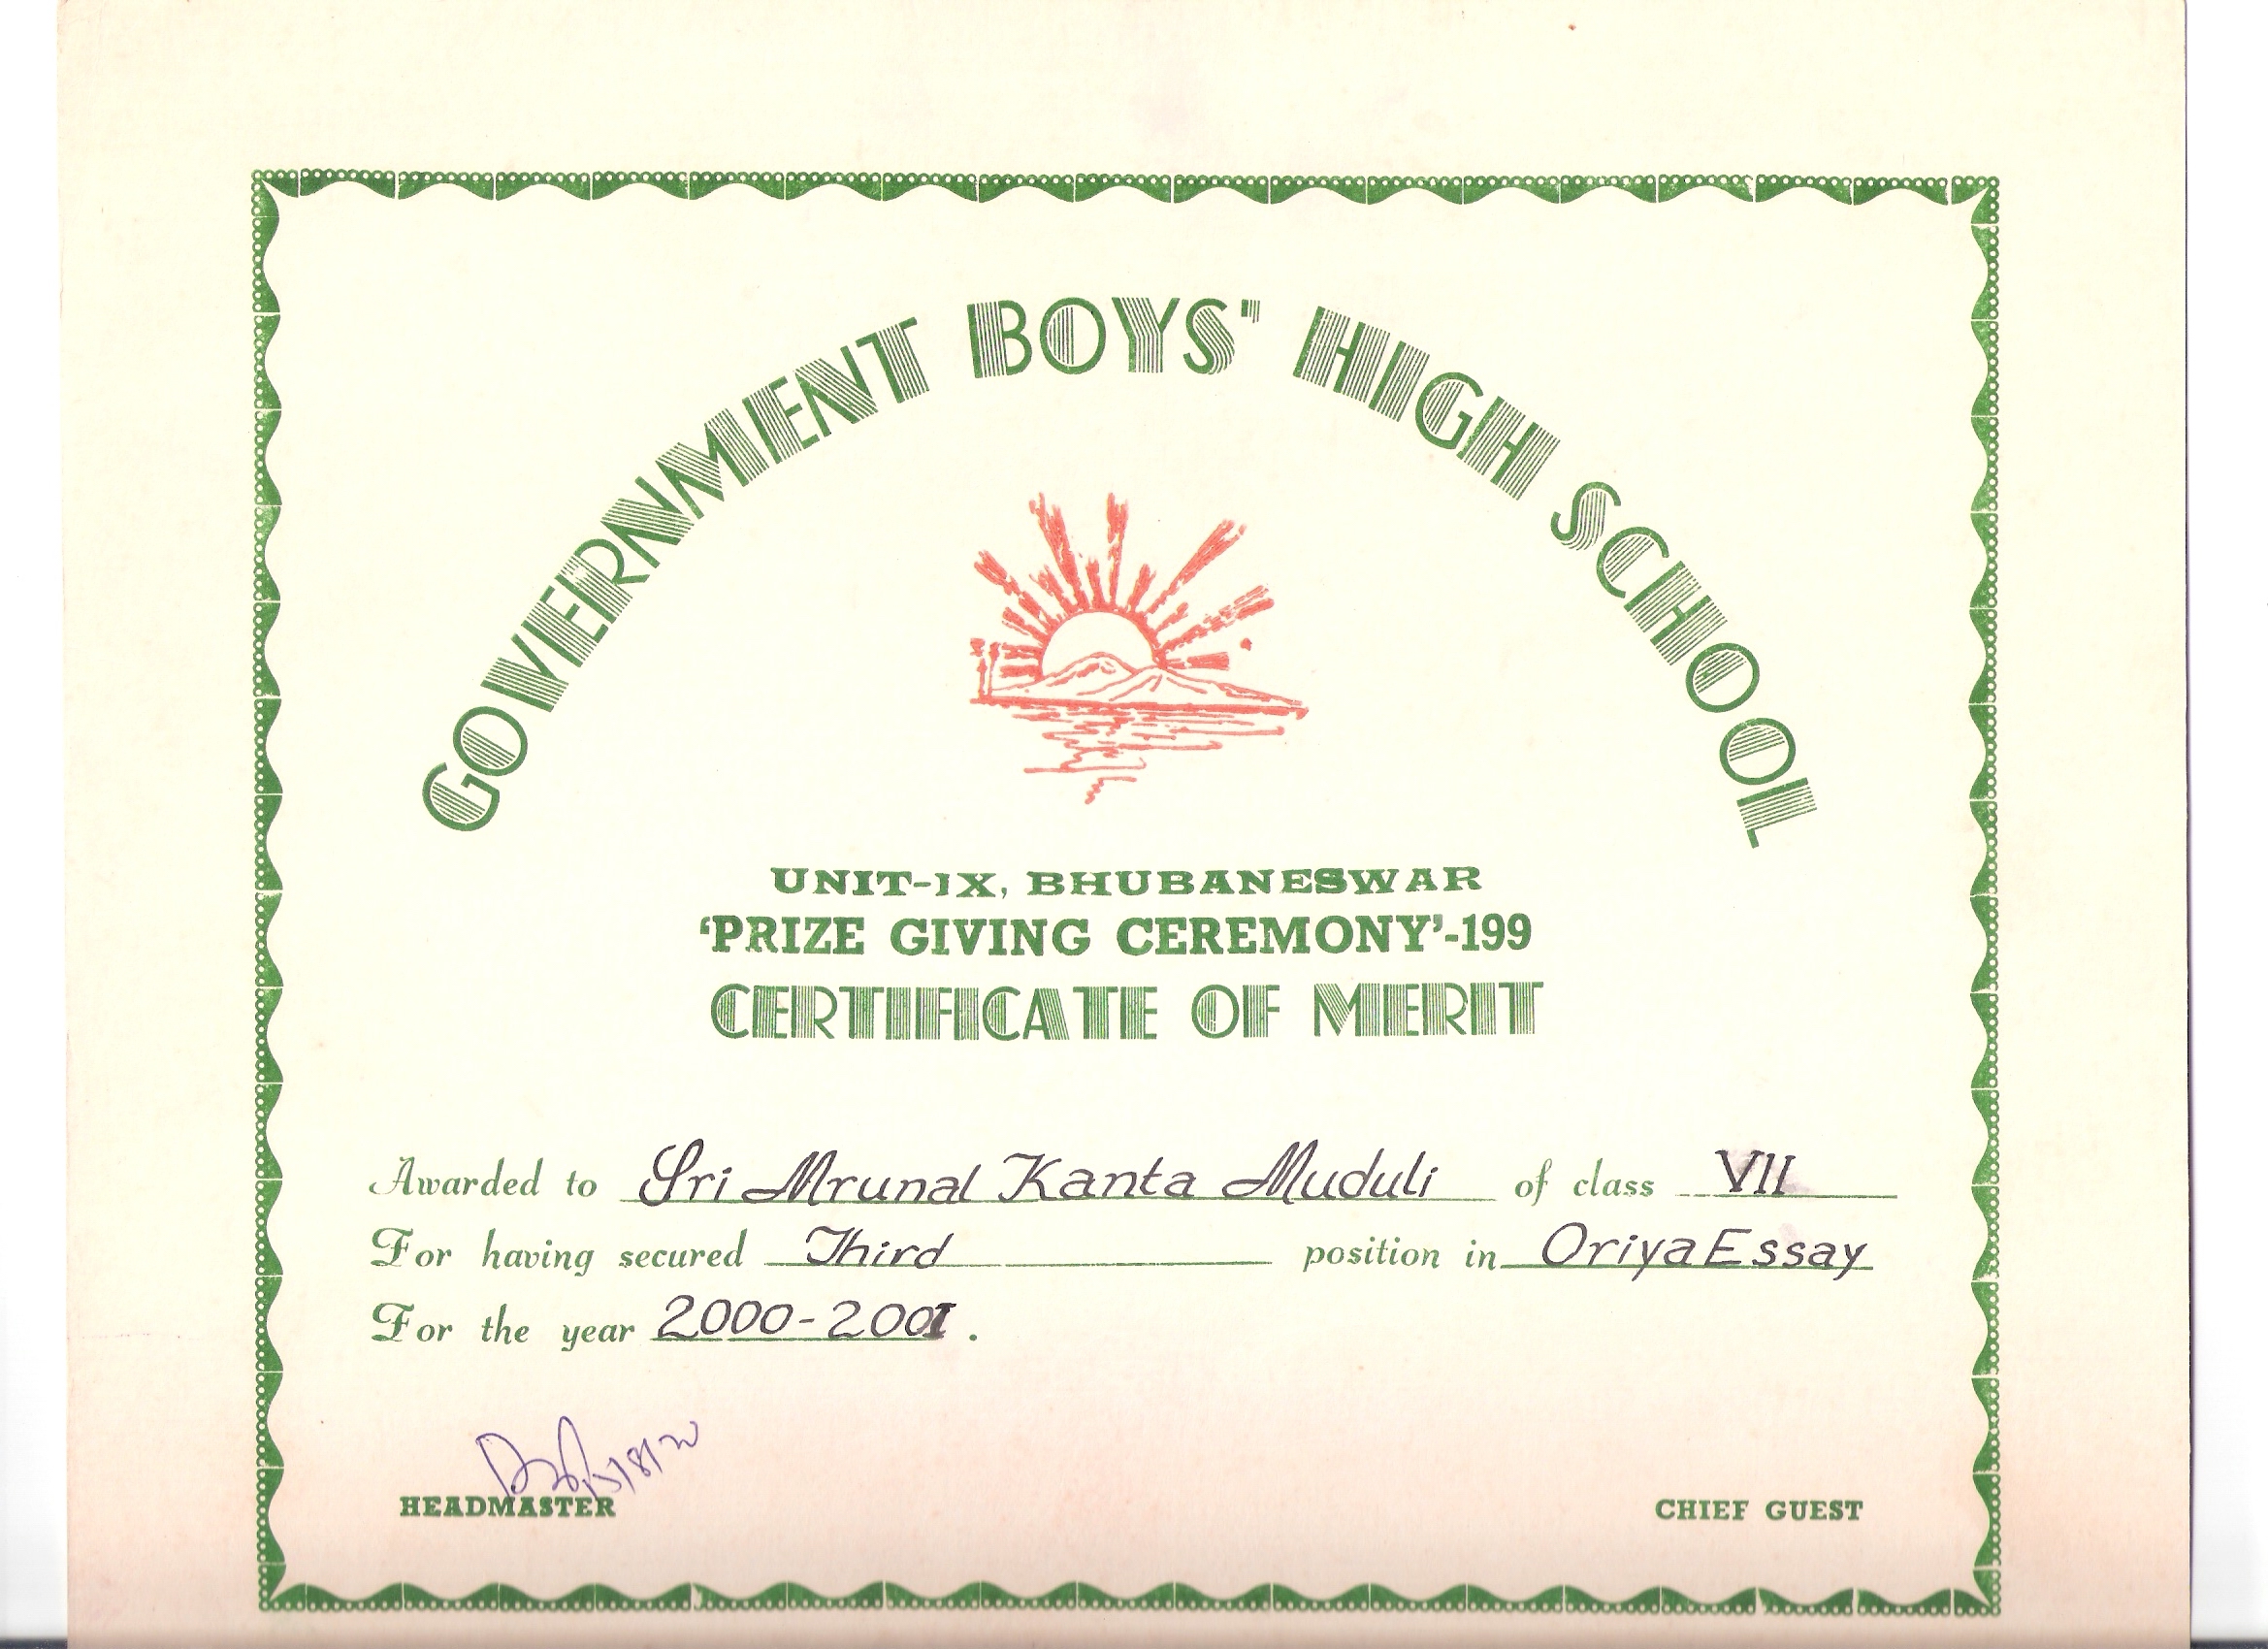 GOVERNMENT BOYS' HIGH SCHOOL
UNIT-IX, BHUBANESWAR
‘PRIZE GIVING CEREMONY’-199
CERTIFICATE OF MERIT
Awarded to Sri Mrunal Kanta Muduli of class VII
For having secured Third position in Oriya Essay
For the year 2000-2001.
HEADMASTER
CHIEF GUEST